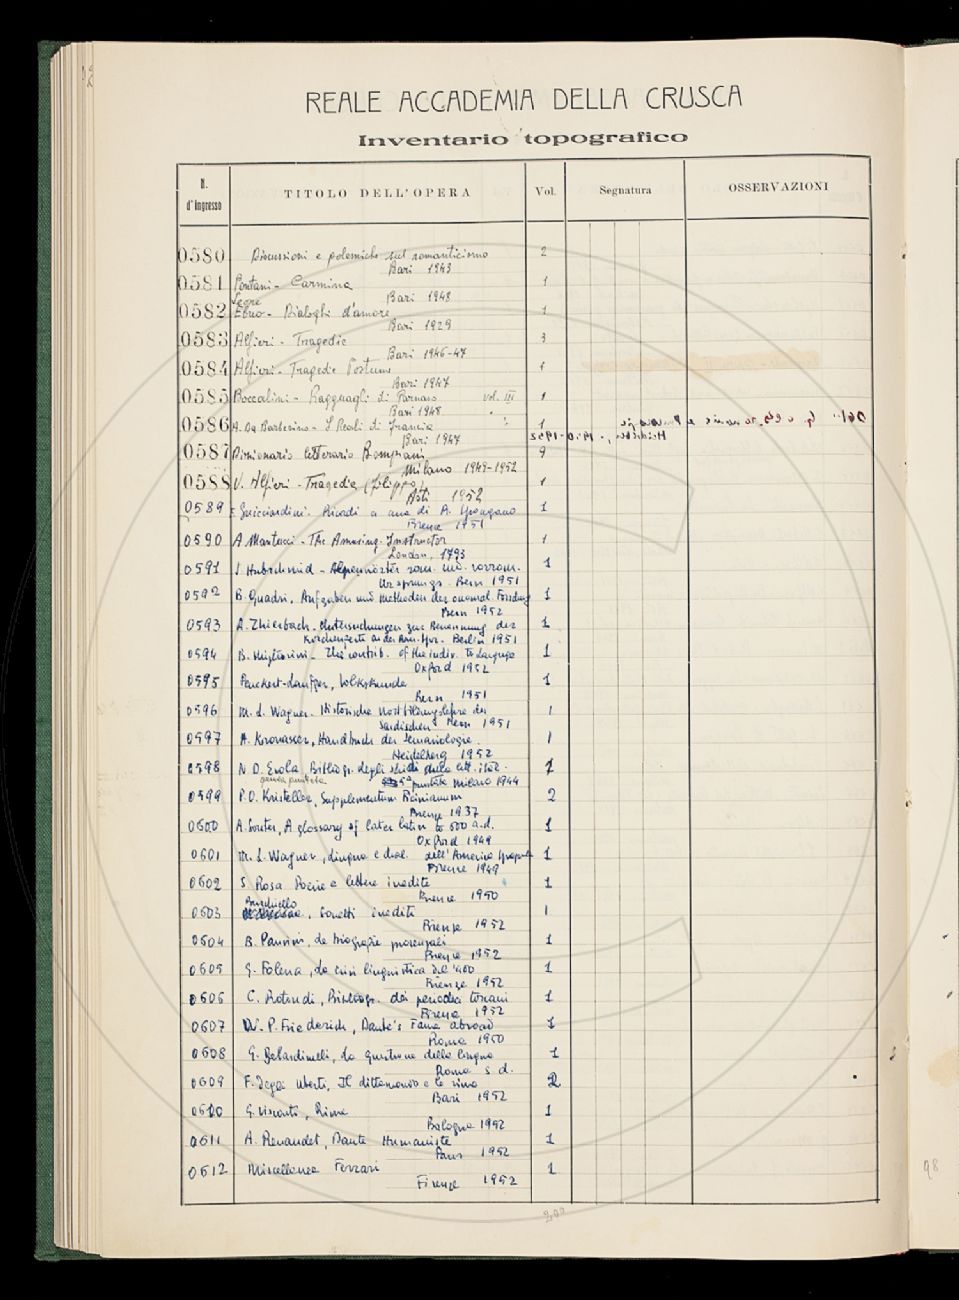 REALE ACCADEMIA DELLA CRUSCA
Inventario topografico
N. d'Ingresso TITOLO DELL'OPERA Vol. Segnatura OSSERVAZIONI
0580 Discussioni e polemiche sul romanticismo 2
Bari 1943
0581 Pontani - Carmina 1
Bari 1948
0582 Ebreo - Dialoghi d'amore 1
Bari 1929
0583 Alfieri - Tragedie 3
Bari 1946-47
0584 Alfieri - Tragedie Postume 1
Bari 1947
0585 Boccalini - Ragguagli di Parnaso vol. III 1
Bari 1948
0586 A. Da Barberino - I Reali di Francia 1
Bari 1947
0587 Dizionario letterario Bompiani 9
Milano 1949-1952
0588 V. Alfieri - Tragedie (Filippo) 1
Asti 1952
0589 F. Guicciardini. Ricordi a cura di R. Spongano 1
Firenze 1951
0590 A. Montucci - The Amusing Instructor 1
London, 1793
0591 J. Hubschmid - Alpenwörter rom. und vorrom. 1
Ursprungs. Bern 1951
0592 B. Quadri, Aufgaben und Methoden der onomas. Forschung 1
Bern 1952
0593 A. Zhierbach. Untersuchungen zur Benennung der 1
Berlin 1951
0594 B. Migliorini - The contrib. of the indiv. to language 1
Oxford 1952
0595 Peuckert-Lauffer, Volkskunde 1
Bern 1951
0596 M. L. Wagner. Historische Wortbildungslehre des 1
Sardischen Bern 1951
0597 H. Kronasser, Handbuch der Semasiologie. 1
Heidelberg 1952
0598 N. D. Evola, Bibliogr. degli studi sulla lett. ital. 1
5ª puntata Milano 1944
0599 P. O. Kristeller, Supplementum Ficinianum 2
Firenze 1937
0600 A. Souter, A glossary of later latin to 600 a.d. 1
Oxford 1949
0601 M. L. Wagner, Lingua e dial. dell'America Spagnola 1
Firenze 1949
0602 S. Rosa Poesie e lettere inedite 1
Firenze 1950
Burchiello
0603 , Sonetti inediti 1
Firenze 1952
0604 B. Panvini, Le biografie provenzali 1
Firenze 1952
0605 G. Folena, La crisi linguistica del '400 1
Firenze 1952
0606 C. Rotondi, Bibliogr. dei periodici toscani 1
Firenze 1952
0607 W. P. Friederich, Dante's Fame abroad 1
Roma 1950
0608 G. Gelardinelli, La questione della lingua 1
Roma s. d.
0609 F. Degli Uberti, Il dittamondo e le rime 2
Bari 1952
0610 G. Visconti, Rime 1
Bologna 1952
0611 A. Renaudet, Dante Humaniste 1
Paris 1952
0612 Miscellanea Ferrari 1
Firenze 1952
98